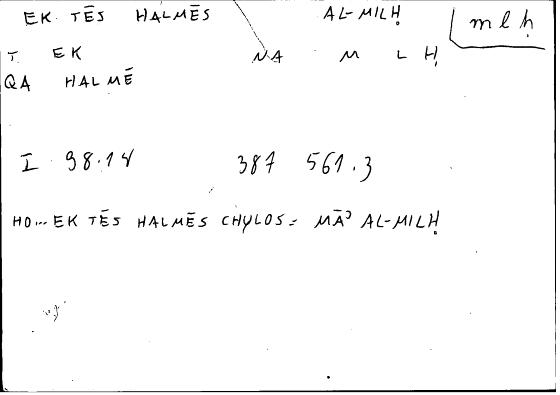 EK TĒS HALMĒS AL-MILḤ mlḥ
T EK NA M L Ḥ
QA HALMĒ
I 98.14 387 561.3
HO... EK TĒS HALMĒS CHYLOS = MĀʾ AL-MILḤ